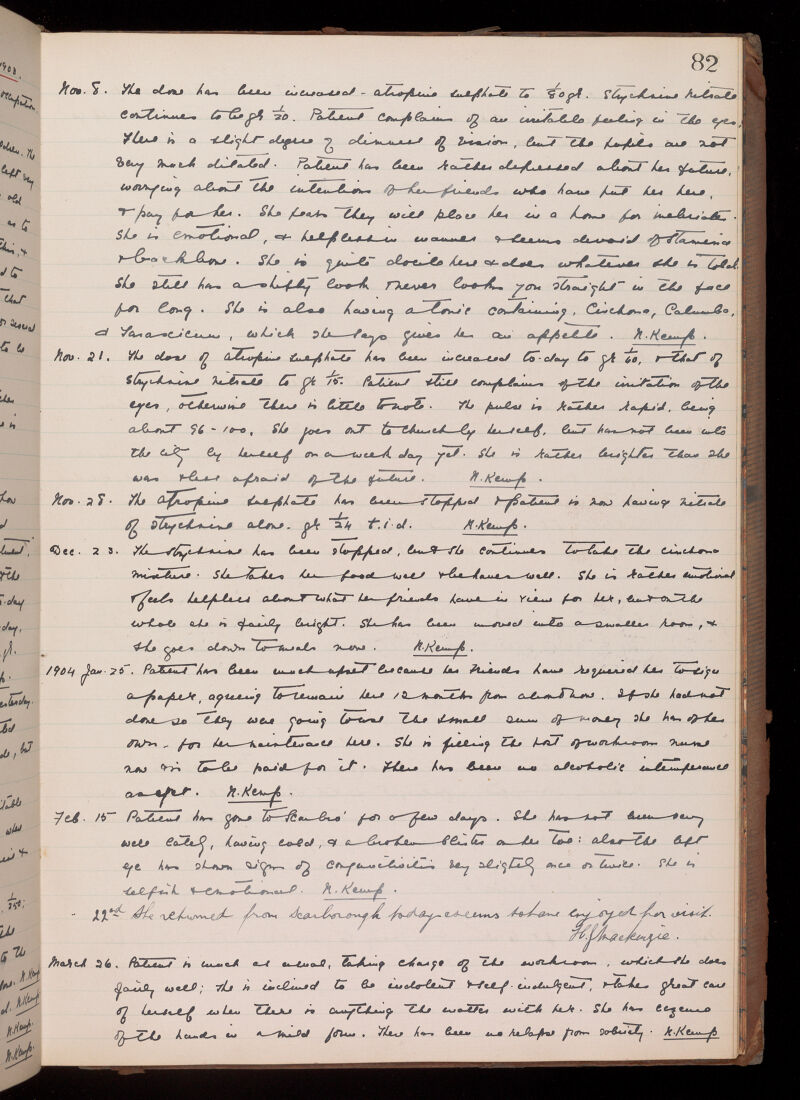 82
Nov. 8. The dose has been increased - atropine sulphate to 1/80 gr. Strychnine nitrate
continues to be gr 1/20. Patient complains of an irritable feeling in the eyes,
There is a slight degree of dimness of vision, but the pupils are not
very much dilated. Patient has been rather depressed about her future,
worrying about the intentions of her friends who have put her here,
& pay for her. She fears they will place her in a home for inebriates.
She is emotional, & helpless in manner & seems devoid of stamina
& backbone. She is quite docile here & does whatever she is told.
She still has a shifty look & never looks you straight in the face
for long. She is also having a tonic containing, Cinchona, Calumba,
& Taraxicum, which she says gives her an appetite. N. Kemp.
Nov. 21. The dose of atropine sulphate has been increased to-day to gr 1/60, & that of
strychnine nitrate to gr 1/15. Patient still complains of the irritation of the
eyes, otherwise there is little to note. The pulse is rather rapid, being
about 96-100. She goes out to church by herself, but has not been into
the city by herself on a week day yet. She is rather brighter than she
was & less afraid of the future. N. Kemp.
Nov. 28. The atropine sulphate has been stopped & patient is now having nitrate
of strychnine alone. gr 1/24 t.i.d. N. Kemp.
Dec. 23. The strychnine has been stopped, but she continues to take the cinchona
mixture. She takes her food well & behaves well. She is rather emotional
& feels helpless about what her friends have in view for her, but on the
whole she is fairly bright. She has been moved into a smaller room, &
she goes down to meals now. N. Kemp.
1904 Jan. 25. Patient has been much upset because her friends have required her to sign
a paper, agreeing to remain here 12 months from about now. If she had not
done so they were going to use the small sum of money she has of her
own - for her maintenance here. She is filling the post of workroom nurse
now & is to be paid for it. There has been no alcoholic intemperance
as yet. N. Kemp.
Feb. 15 Patient has gone to Scarbro' for a few days. She has not been very
well lately, having cold, & a broken blister on her toe: also the left
eye has shown signs of conjunctivitis very slightly once or twice. She is
selfish & emotional. N. Kemp.
22nd She returned from Scarborough today & seems to have enjoyed her visit.
Mackenzie.
March 26. Patient is much as usual, taking charge of the workroom, which she does
fairly well; she is inclined to be indolent & self-indulgent, & takes great care
of herself when there is anything the matter with her. She has eczema
of the hands in a mild form. There has been no relapse from sobriety. N. Kemp